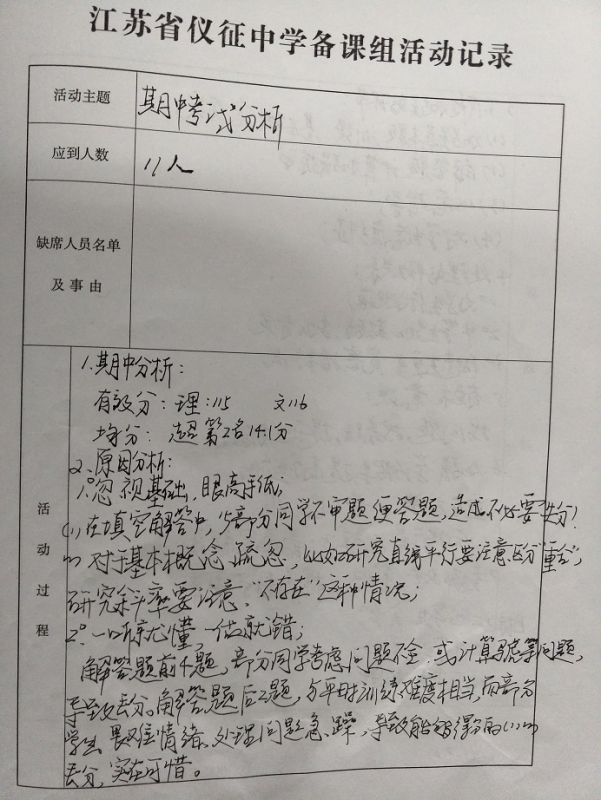 江苏省仪征中学备课组活动记录
活动主题
期中考试分析
应到人数
11人
缺席人员名单
及事由
活动过程
1.期中分析：
有效分：理：115 文116
均分：超第2名14.1分
2.原因分析：
1°忽视基础，眼高手低；
(1)在填空解答中，部分同学不审题便答题，造成不必要失分！
(2)对于基本概念疏忽，比如研究直线平行要注意区分“重合”，
研究斜率要注意“不存在”这种情况；
2°一听就懂，一做就错；
解答题前4题，部分同学考虑问题不全，或计算等问题，
导致丢分。解答题后2题，与平时训练难度相当，而部分
学生畏难情绪、处理问题急躁，导致能够得分的(1)(2)
丢分，实在可惜。